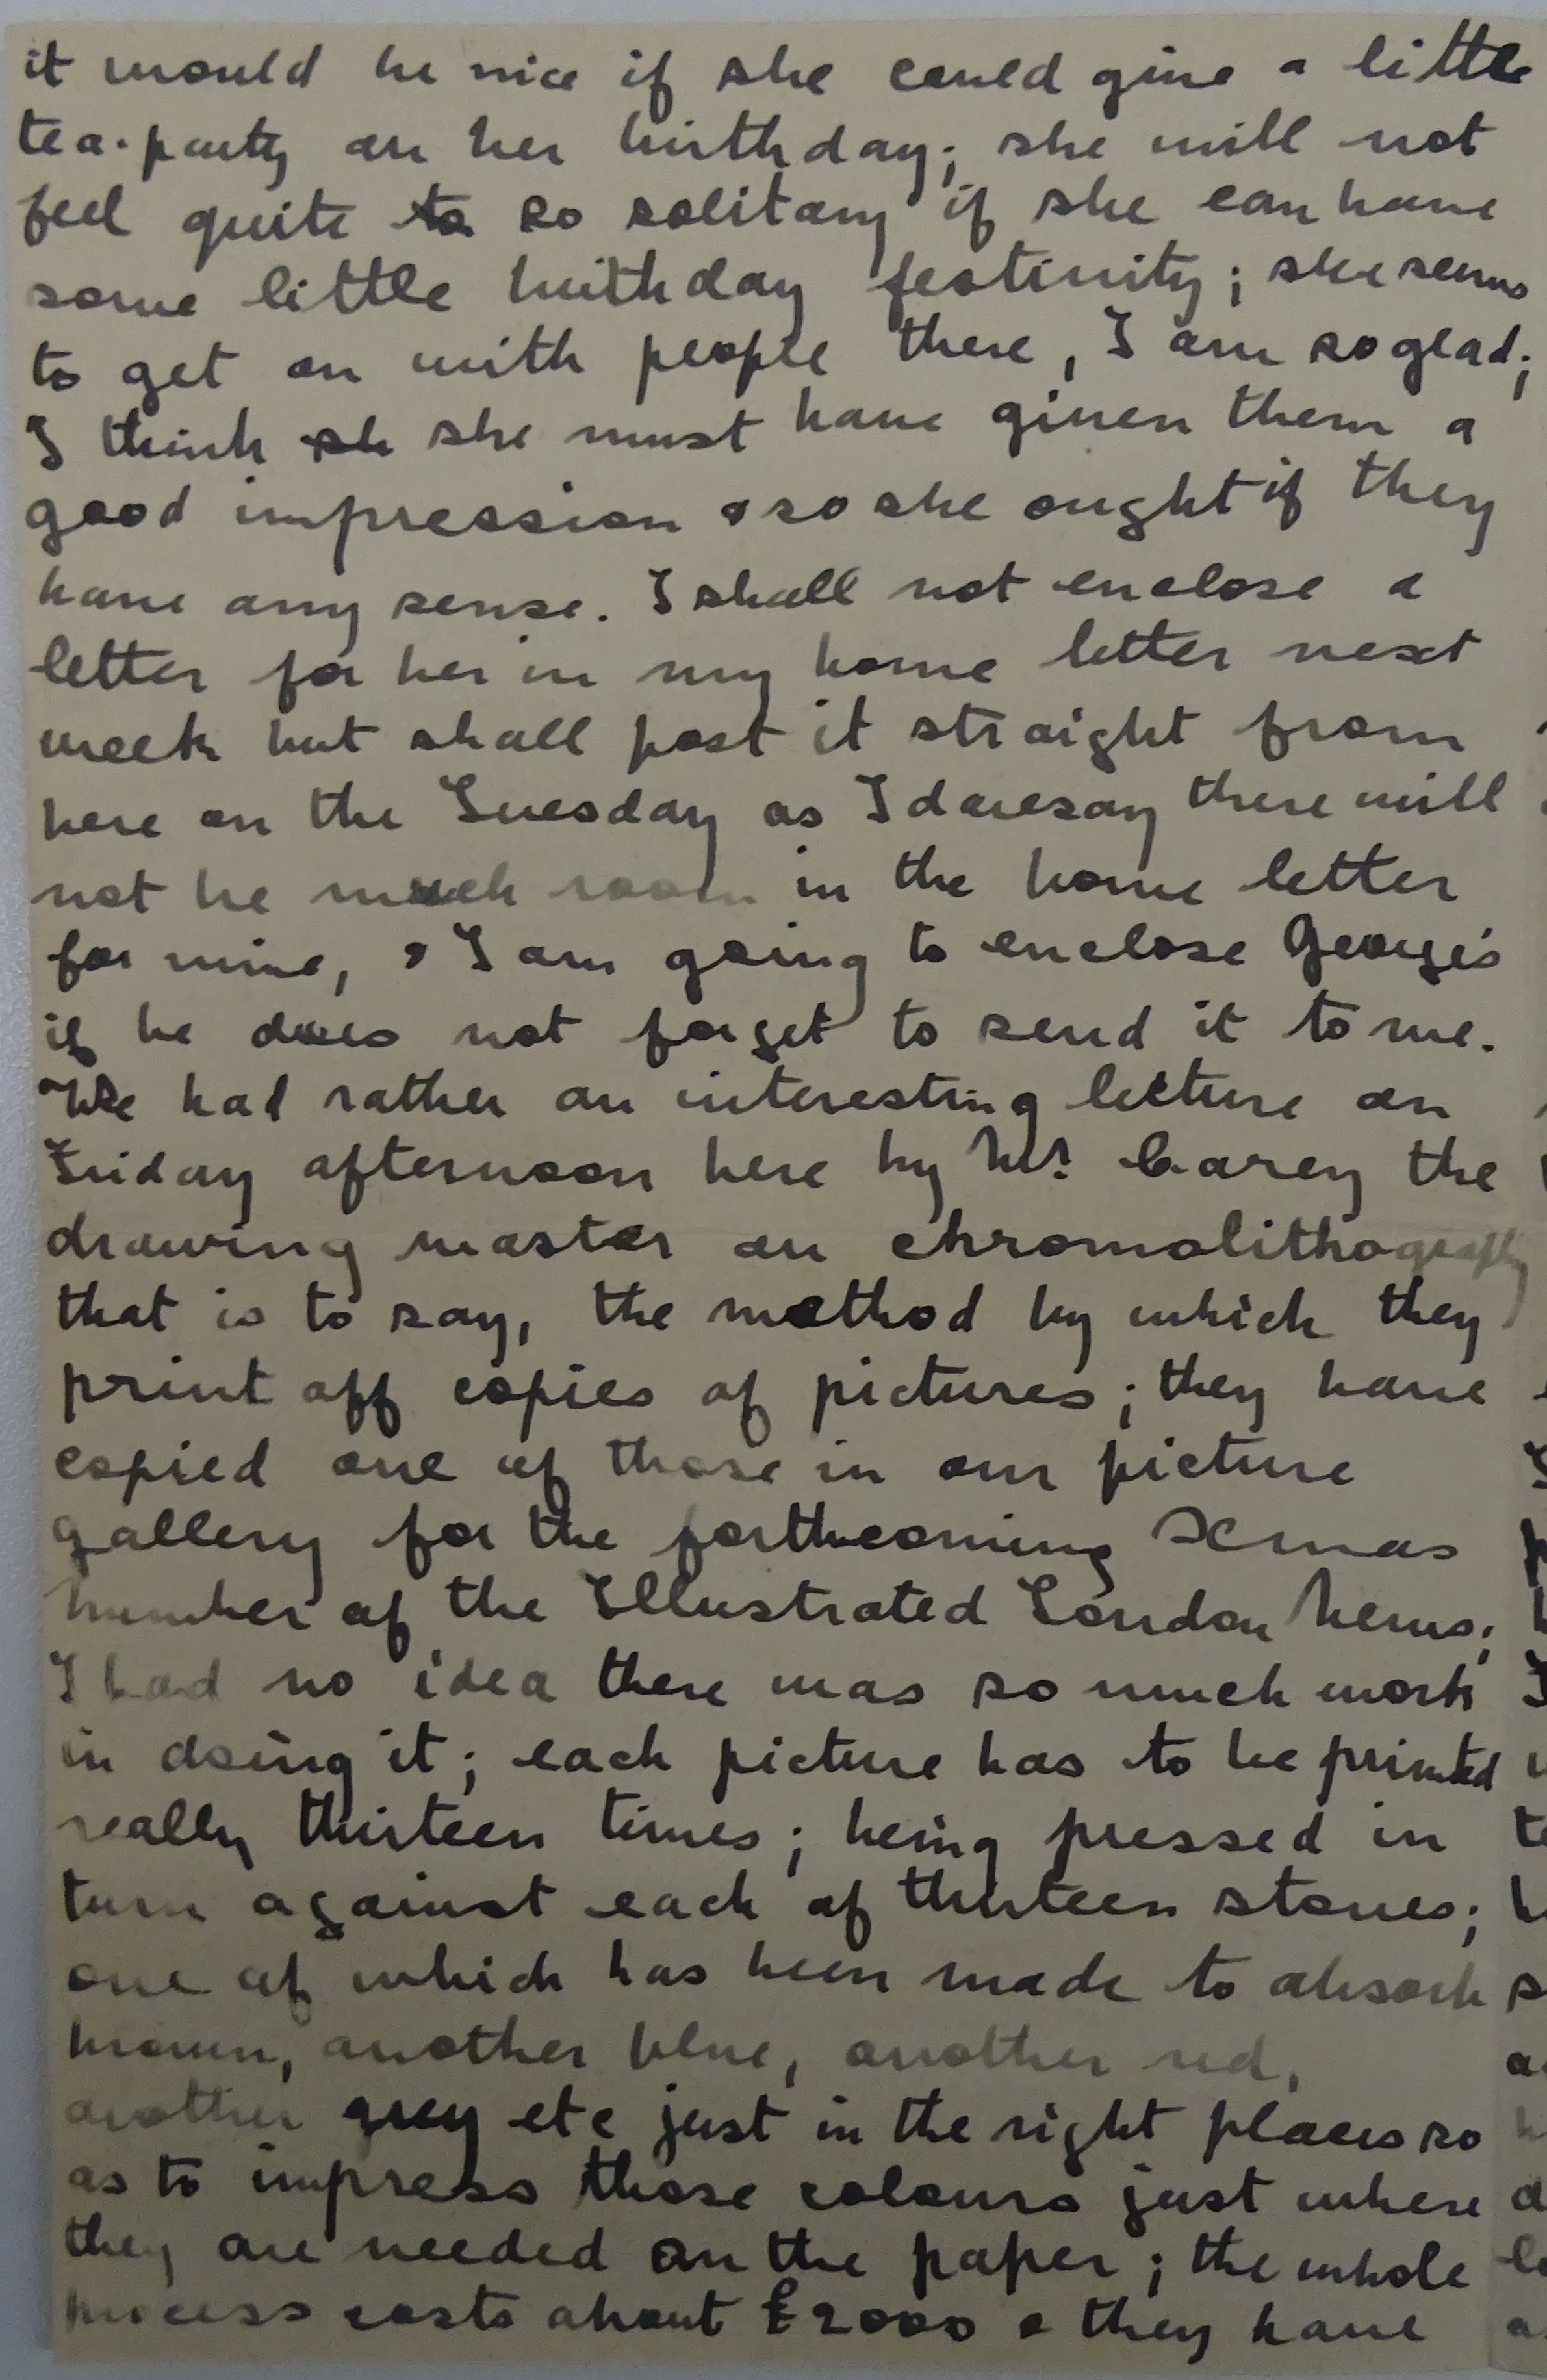 it would be nice if she could give a little
tea-party on her birthday; she will not
feel quite to so solitary if she can have
some little birthday festivity; she seems
to get on with people there, I am so glad;
I think sh she must have given them a
good impression & so she ought if they
have any sense. I shall not enclose a
letter for her in my home letter next
week but shall post it straight from
here on the Tuesday as I daresay there will
not be much room in the home letter
for mine, & I am going to enclose George's
if he does not forget to send it to me.
We had rather an interesting lecture on
Friday afternoon here by Mr. Carey the
drawing master on chromolithography
that is to say, the method by which they
print off copies of pictures; they have
copied one of those in our picture
gallery for the forthcoming Xmas
number of the Illustrated London News;
I had no idea there was so much work
in doing it; each picture has to be printed
really thirteen times; being pressed in
turn against each of thirteen stones;
one of which has been made to absorb
brown, another blue, another red,
another grey etc just in the right places so
as to impress those colours just where
they are needed on the paper; the whole
process costs about £2000 & they have